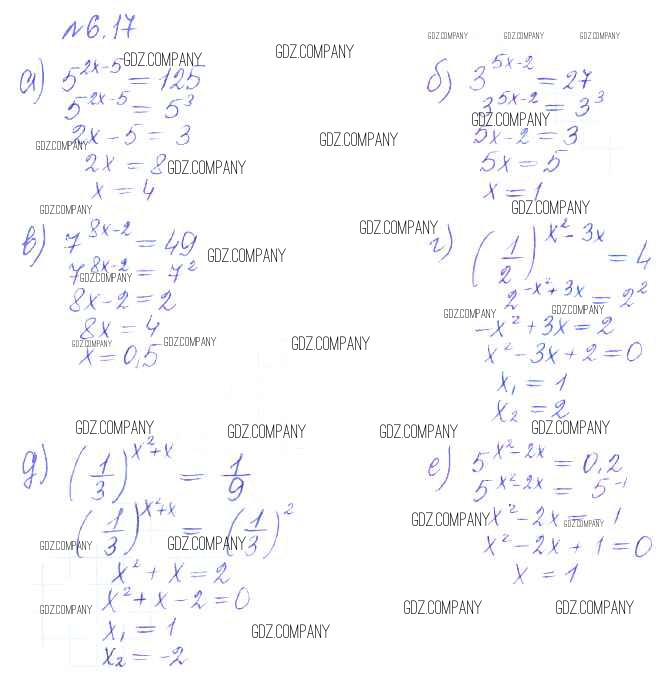 №6.17
GDZ.COMPANY GDZ.COMPANY GDZ.COMPANY GDZ.COMPANY GDZ.COMPANY
а) 5^{2x-5} = 125
5^{2x-5} = 5^3
2x - 5 = 3
GDZ.COMPANY
2x = 8 GDZ.COMPANY
x = 4
GDZ.COMPANY
б) 3^{5x-2} = 27
3^{5x-2} = 3^3
GDZ.COMPANY
GDZ.COMPANY
5x-2 = 3
5x = 5
x = 1
GDZ.COMPANY
в) 7^{8x-2} = 49
GDZ.COMPANY
7^{8x-2} = 7^2
GDZ.COMPANY
8x-2 = 2
8x = 4
GDZ.COMPANY GDZ.COMPANY GDZ.COMPANY
x = 0,5
GDZ.COMPANY
г) (1/2)^{x^2-3x} = 4
2^{-x^2+3x} = 2^2
GDZ.COMPANY GDZ.COMPANY
-x^2+3x = 2
x^2-3x+2=0
x_1 = 1
x_2 = 2
GDZ.COMPANY GDZ.COMPANY GDZ.COMPANY GDZ.COMPANY
д) (1/3)^{x^2+x} = 1/9
(1/3)^{x^2+x} = (1/3)^2
GDZ.COMPANY GDZ.COMPANY
x^2 + x = 2
x^2+x-2=0
GDZ.COMPANY
x_1 = 1
GDZ.COMPANY
x_2 = -2
е) 5^{x^2-2x} = 0,2
5^{x^2-2x} = 5^{-1}
GDZ.COMPANY x^2-2x = -1
GDZ.COMPANY
x^2-2x+1=0
x = 1
GDZ.COMPANY GDZ.COMPANY